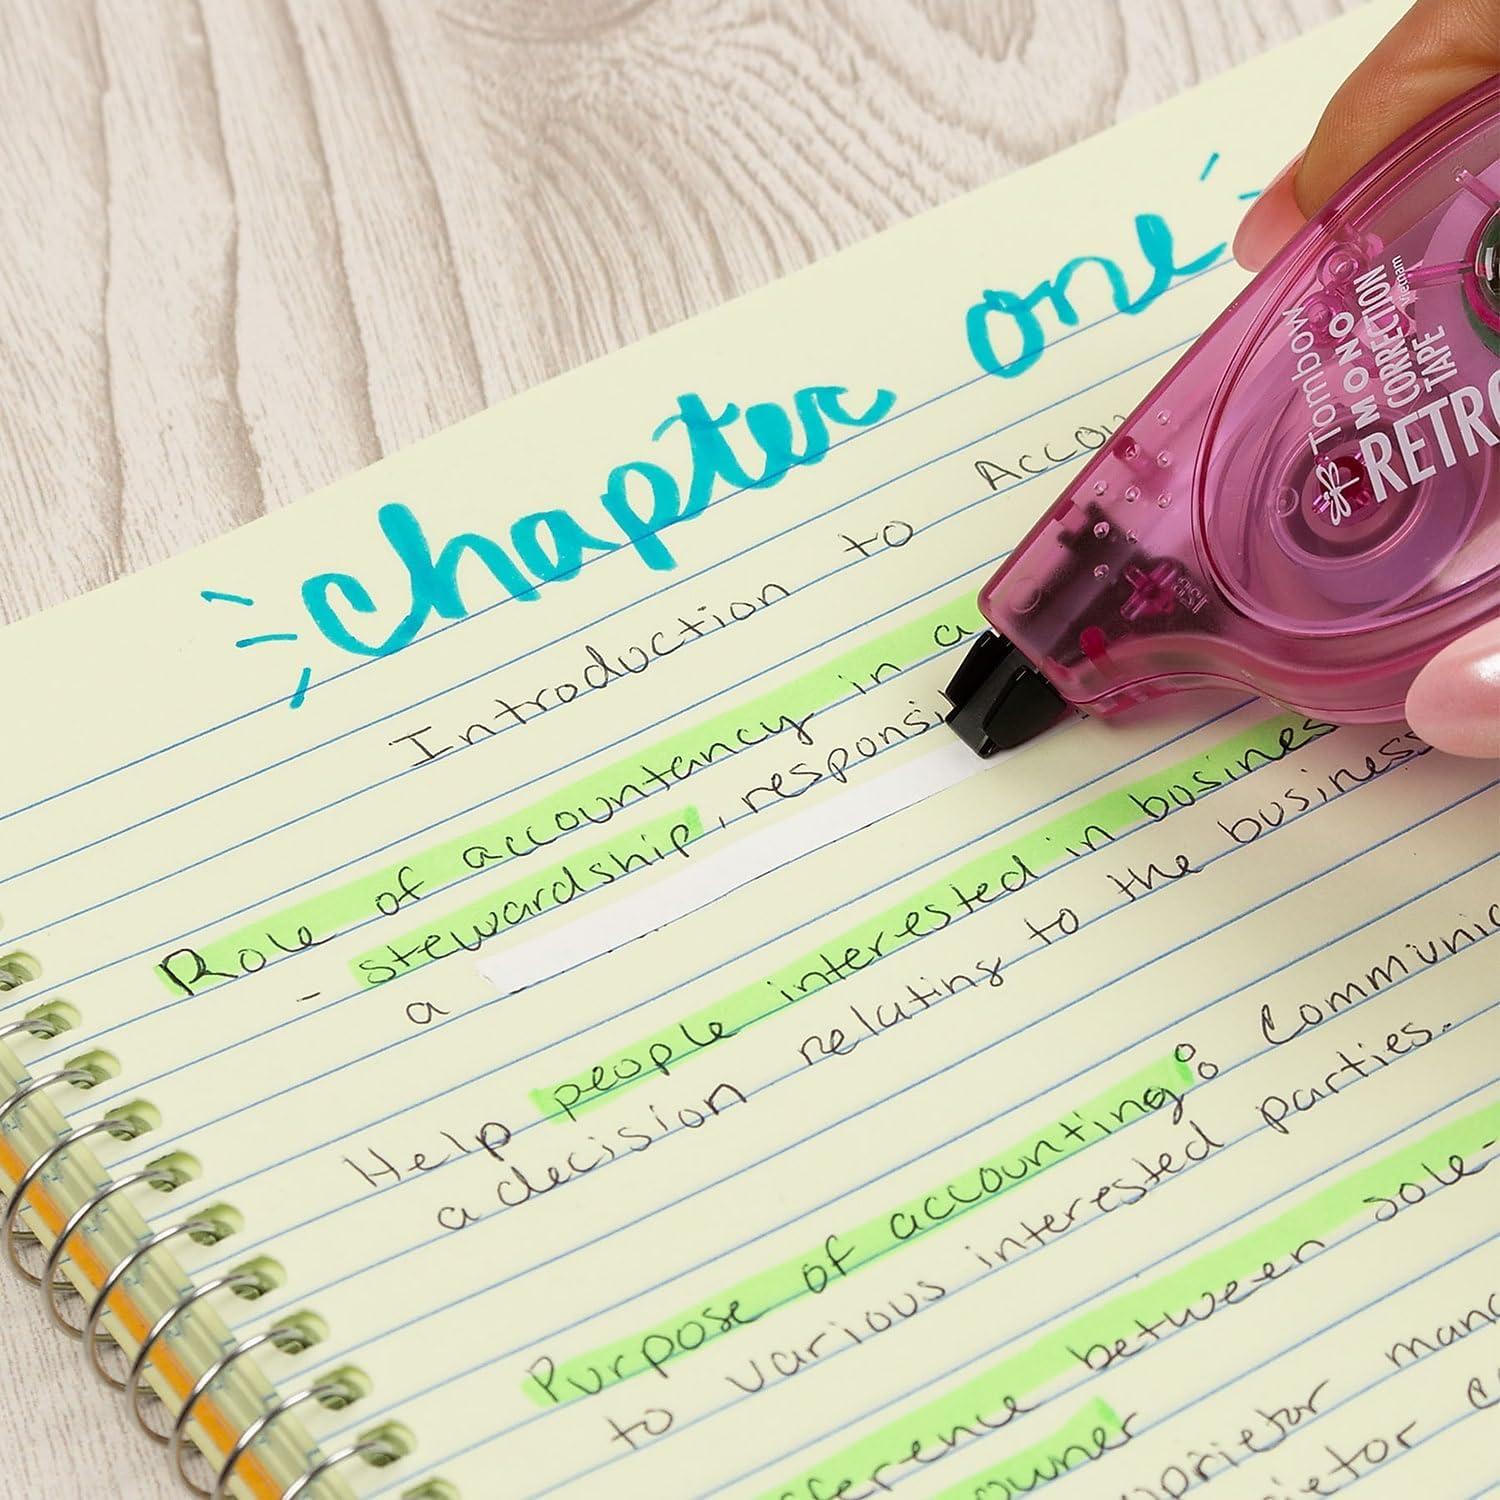 chapter one
Introduction to Accou
Role of accountancy in a
- stewardship, responsi
a
Help people interested in business
a decision relating to the business
Purpose of accounting: Communic
to various interested parties.
fference between sole-
owner
oprietor mana
ietor c
Tombow
MONO
CORRECTION
TAPE
RETRO
Vietnam